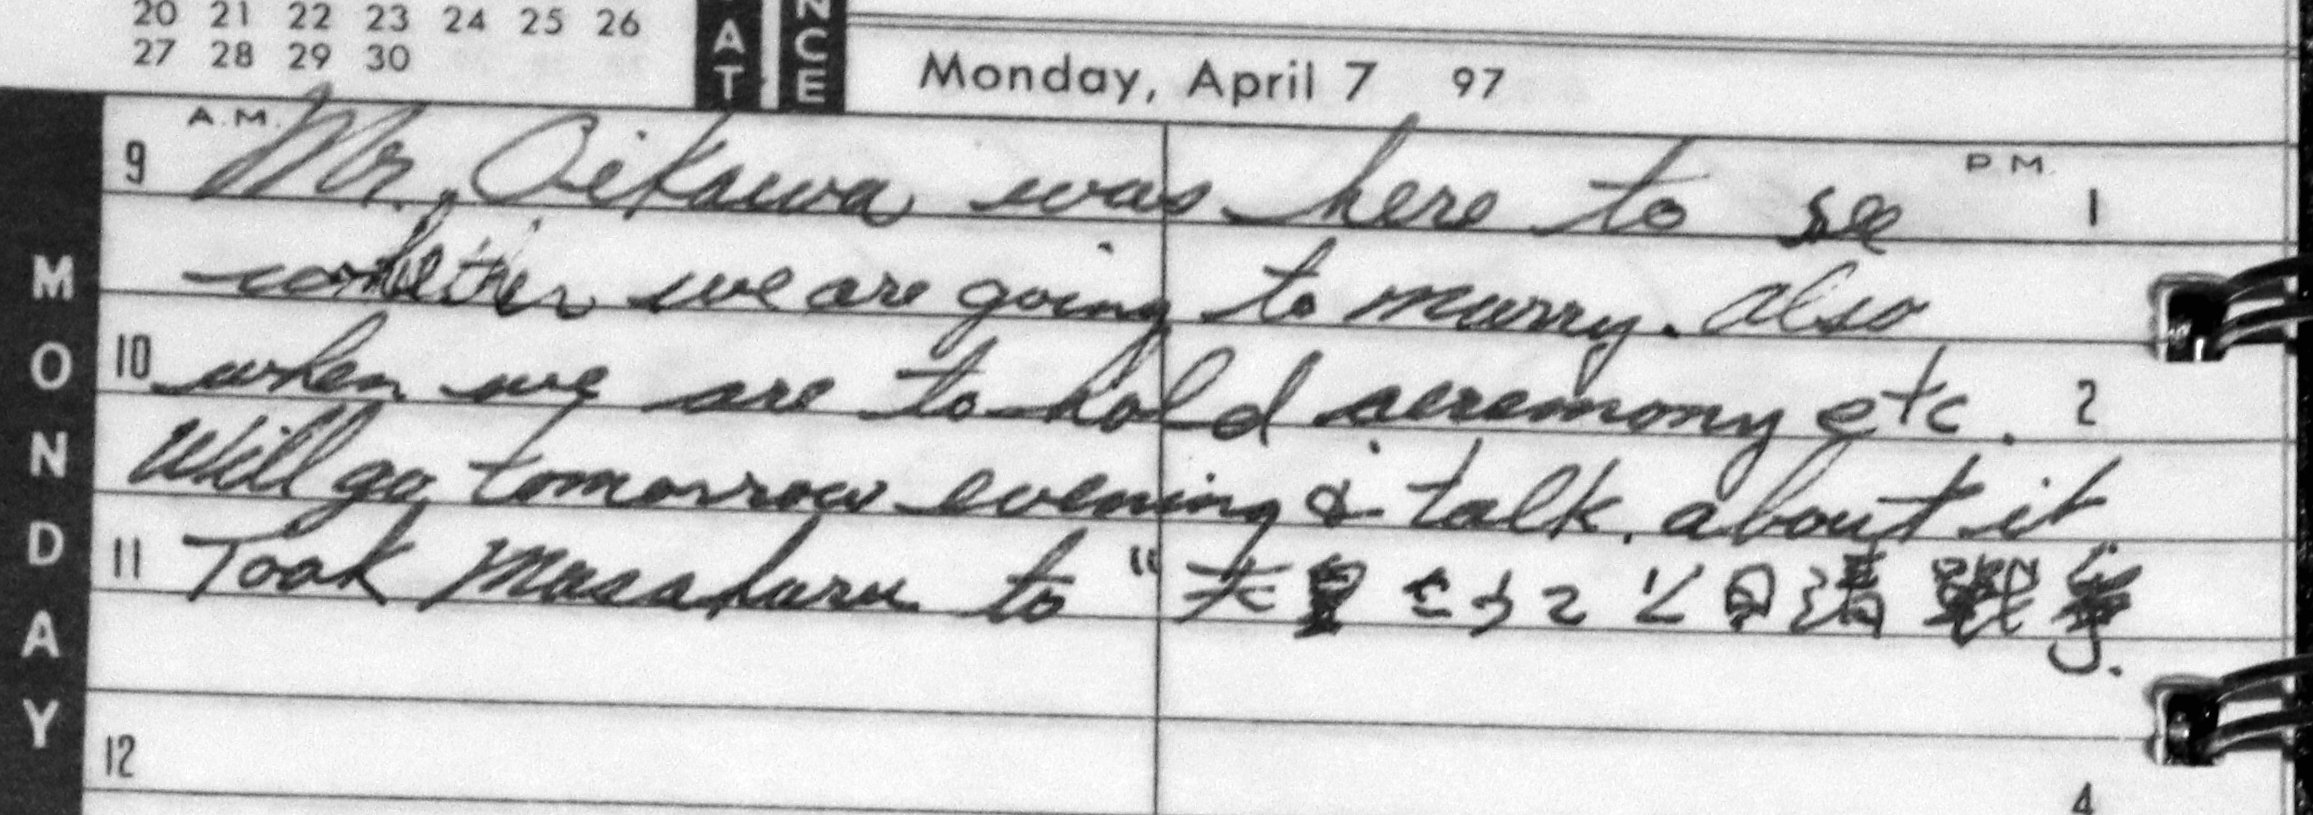 20 21 22 23 24 25 26
27 28 29 30
AT
NCE
Monday, April 7 97
MONDAY
A.M.
P.M.
9 Mr. Oikawa was here to see 1
whether we are going to marry. also
10 when we are to hold ceremony etc. 2
Will go tomorrow evening & talk about it
11 Took Masaharu to "天皇こうごと日清戦争.
12
4